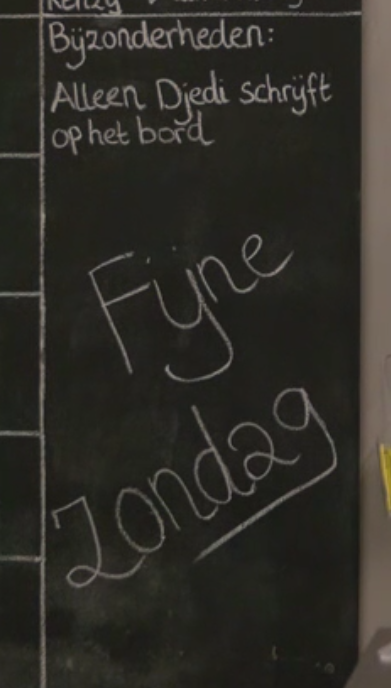 Bijzonderheden:
Alleen Djedi schrijft
op het bord
Fijne
Zondag